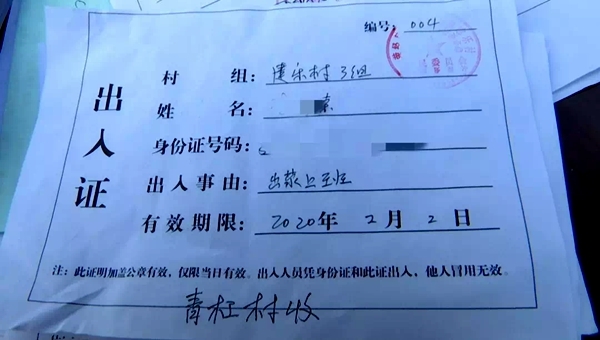 编号: 004
出入证
村 组: 建乐村3组
姓 名:
身份证号码:
出入事由: 出荻上班
有效期限: 2020年 2月 2日
注: 此证明加盖公章有效, 仅限当日有效。出入人员凭身份证和此证出入, 他人冒用无效。
青杠村收